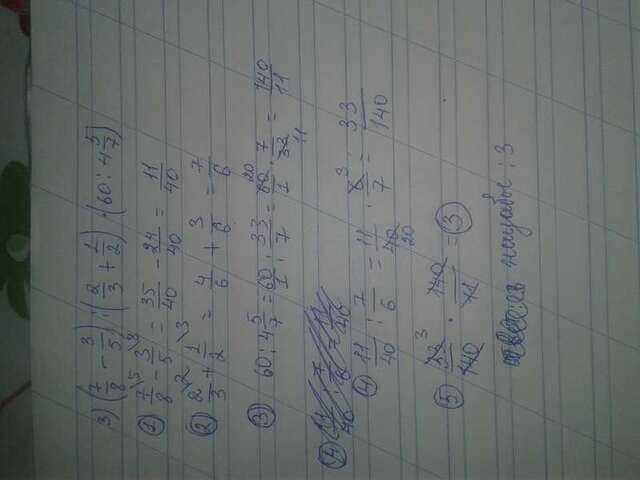 3) (7/8 - 3/5) : (2/3 + 1/2) · (60 : 4 5/7)
① 7/8 \5 - 3/5 \8 = 35/40 - 24/40 = 11/40
② 2/3 \2 + 1/2 \3 = 4/6 + 3/6 = 7/6
③ 60 : 4 5/7 = 60/1 : 33/7 = 60 20/1 · 7/33 11 = 140/11
④ 11/40 : 7/6 = 11/40
④ 11/40 : 7/6 = 11/40 20 · 6 3/7 = 33/140
⑤ 33 3/140 · 140/11 = ③
: 3